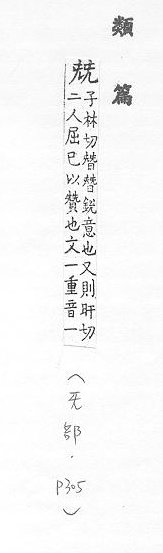 類篇
兓
子林切朁朁銳意也又則旰切
二人屈己以贊也文一重音一
(旡部.P305)